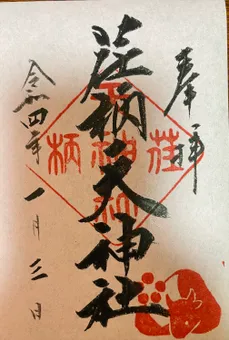 奉拝
荏柄天神社
荏柄天神社
令和四年一月三日